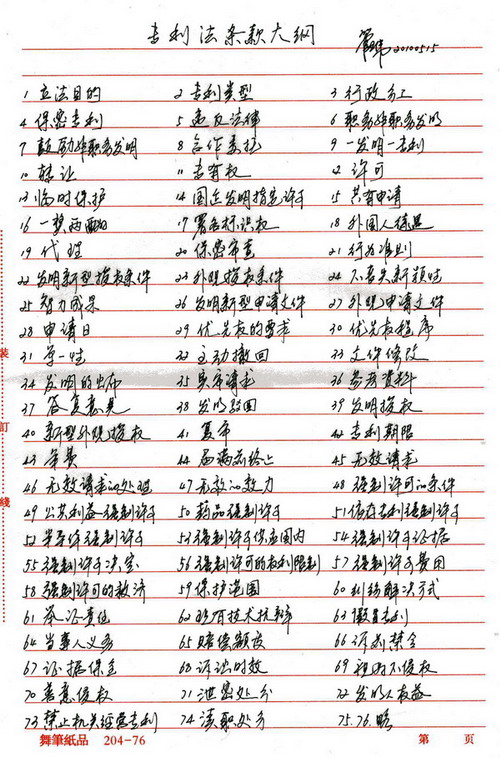 专利法条款大纲
20100515
1 立法目的 2 专利类型 3 行政分工
4 保密专利 5 违反法律 6 职务非职务发明
7 鼓励非职务发明 8 合作委托 9 一发明一专利
10 转让 11 专有权 12 许可
13 临时保护 14 国企发明指定许可 15 共有申请
16 一奖两酬 17 署名标识权 18 外国人待遇
19 代理 20 保密审查 21 行为准则
22 发明新型授权条件 23 外观授权条件 24 不丧失新颖性
25 智力成果 26 发明新型申请文件 27 外观申请文件
28 申请日 29 优先权的要求 30 优先权程序
31 单一性 32 主动撤回 33 文件修改
34 发明的公布 35 实审请求 36 参考资料
37 答复意见 38 发明驳回 39 发明授权
40 新型外观授权 41 复审 42 专利期限
43 年费 44 届满前终止 45 无效请求
46 无效请求的处理 47 无效的效力 48 强制许可的条件
49 公共利益强制许可 50 药品强制许可 51 依存专利强制许可
52 半导体强制许可 53 强制许可供应国内 54 强制许可证据
55 强制许可决定 56 强制许可的权利限制 57 强制许可费用
58 强制许可的救济 59 保护范围 60 纠纷解决方式
61 举证责任 62 现有技术抗辩 63 假冒专利
64 当事人义务 65 赔偿额度 66 诉前禁令
67 证据保全 68 诉讼时效 69 视为不侵权
70 善意侵权 71 泄密处分 72 发明人权益
73 禁止机关经营专利 74 渎职处分 75.76.略
舞筆紙品 204-76 第 页
装
訂
綫